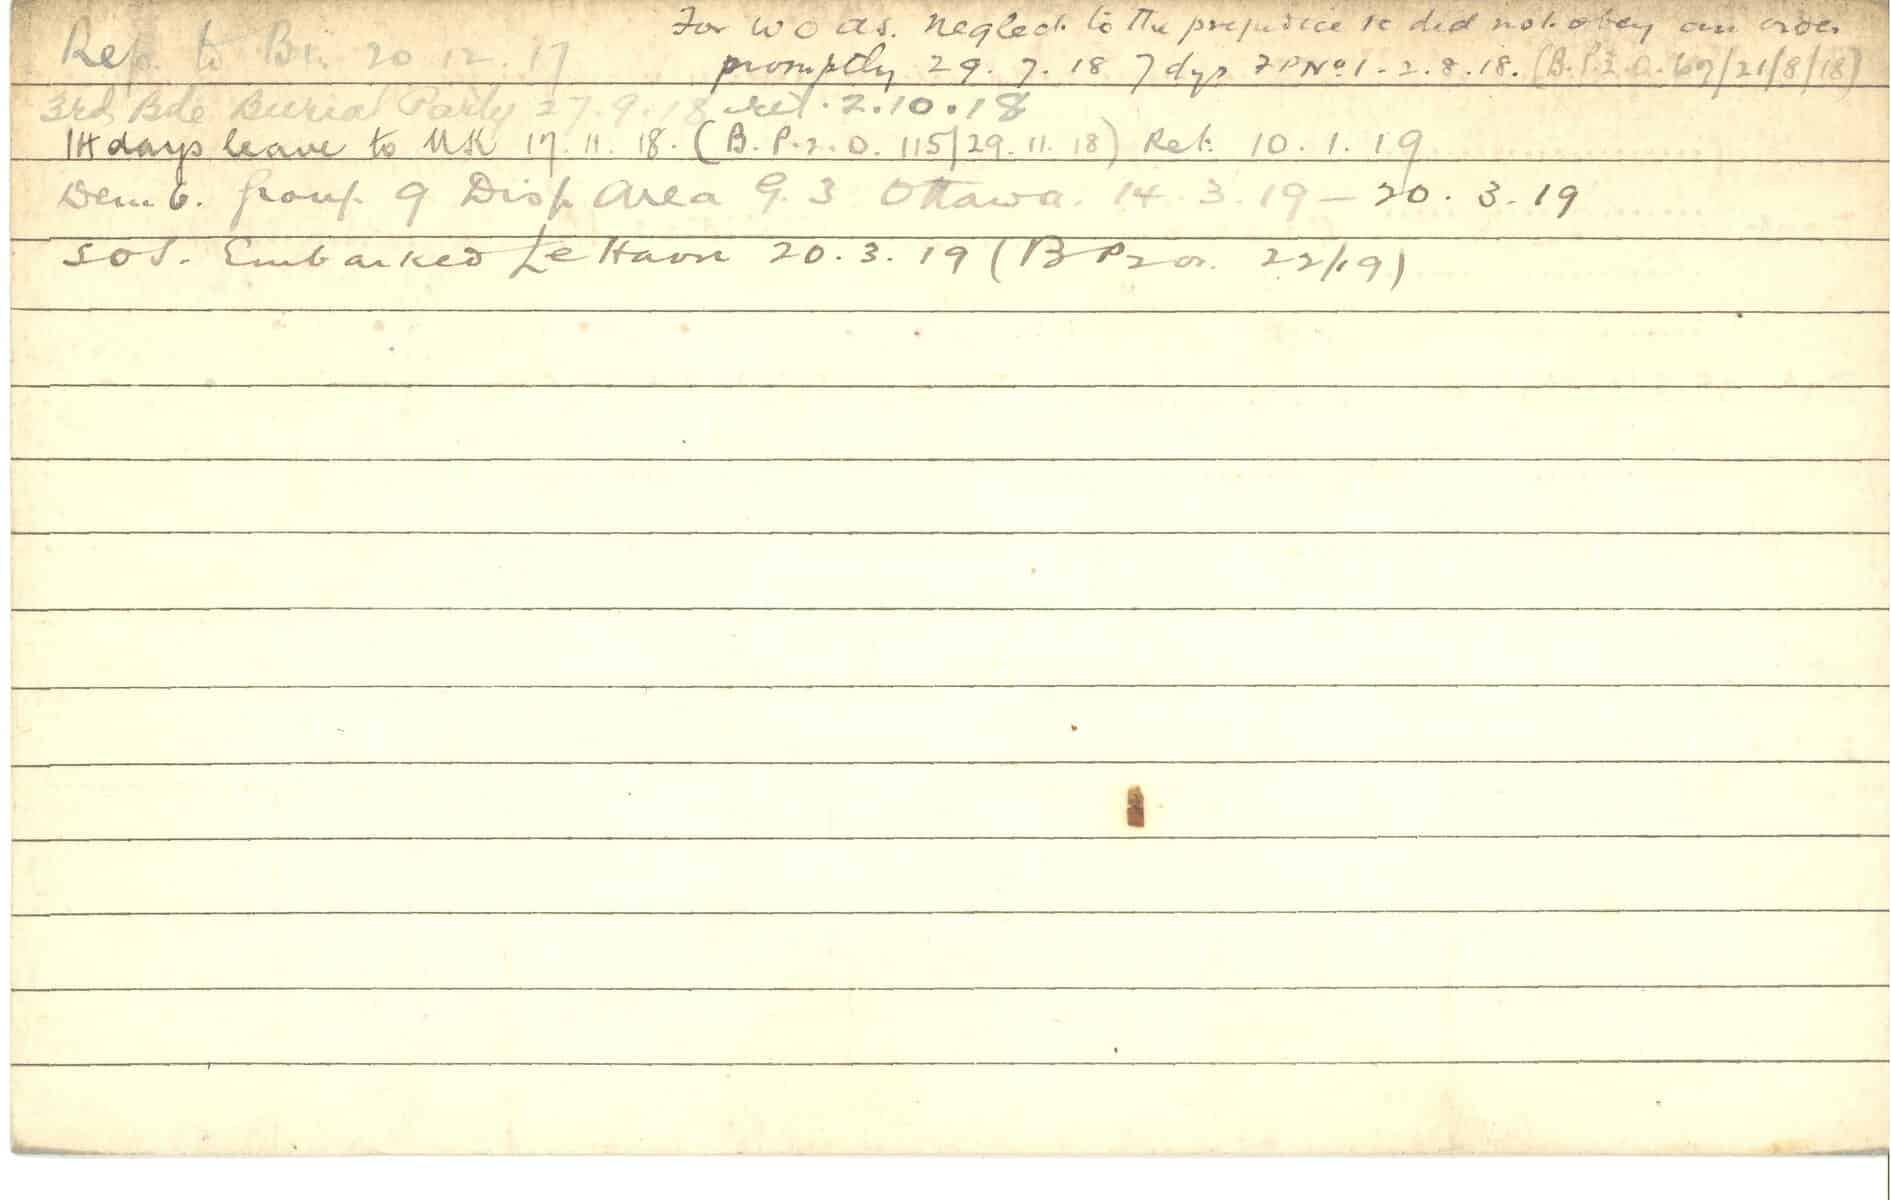 For W O as. Neglect to the prejudice ie did not obey an order
Rep. to Bn. 20.12.17
promptly 29.7.18 7 dys FP No 1. 2.8.18. (B.P.2.O. 67/21/8/18)
3rd Bde Burial Party 27.9.18 ret. 2.10.18
14 days leave to UK 17.11.18. (B.P.2.O. 115/29.11.18) Ret. 10.1.19
Demb. Group 9 Disp Area G.3 Ottawa. 14.3.19 – 20.3.19
SOS. Embarked Le Havre 20.3.19 (B P 2 or. 22/19)